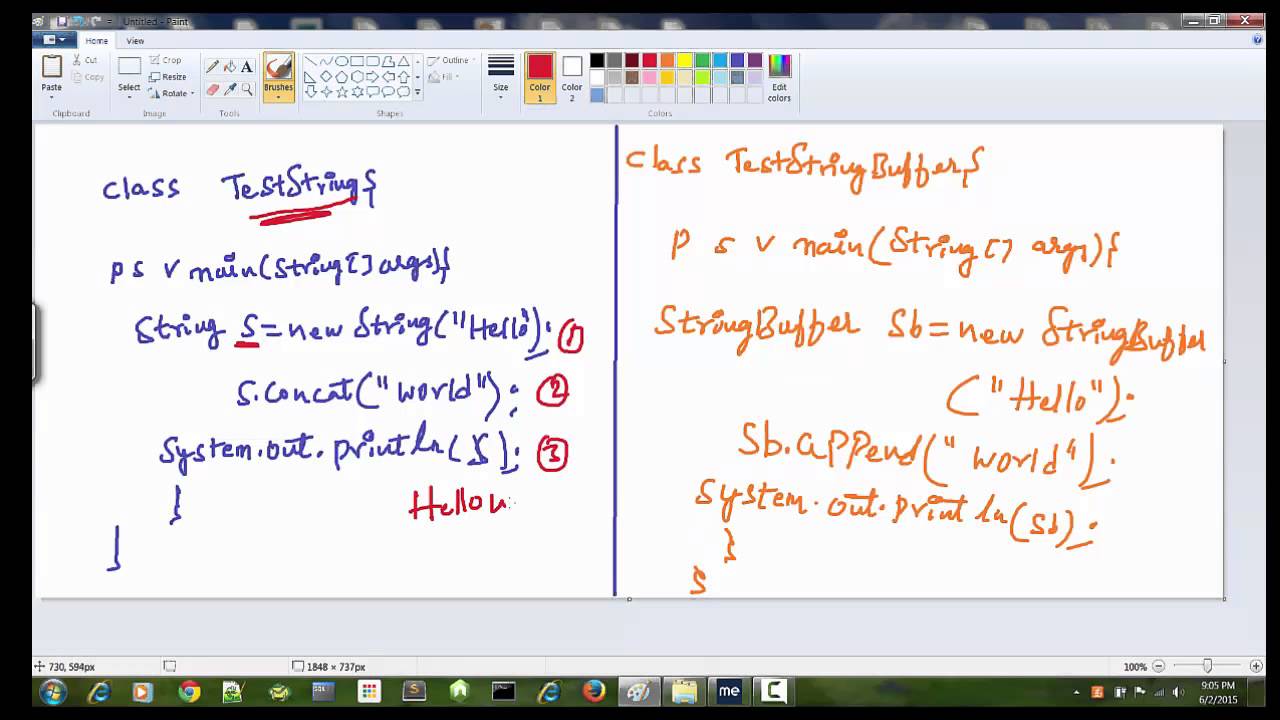 Untitled - Paint
Home View
Cut
Copy
Paste
Clipboard
Select
Crop
Resize
Rotate
Image
A
Tools
Brushes
Outline
Fill
Shapes
Size
Color 1
Color 2
Edit colors
Colors
class TestString{
p s v main(String[] args){
String s=new String("Hello"); 1
s.concat("world"); 2
System.out.println(s); 3
}
Hello
}
class TestStringBuffer{
p s v main(String[] args){
StringBuffer Sb=new StringBuffer
("Hello");
Sb.append("world");
System.out.println(Sb);
}
730, 594px
1848 × 737px
100%
SQL
S
me
C
9:05 PM
6/2/2015